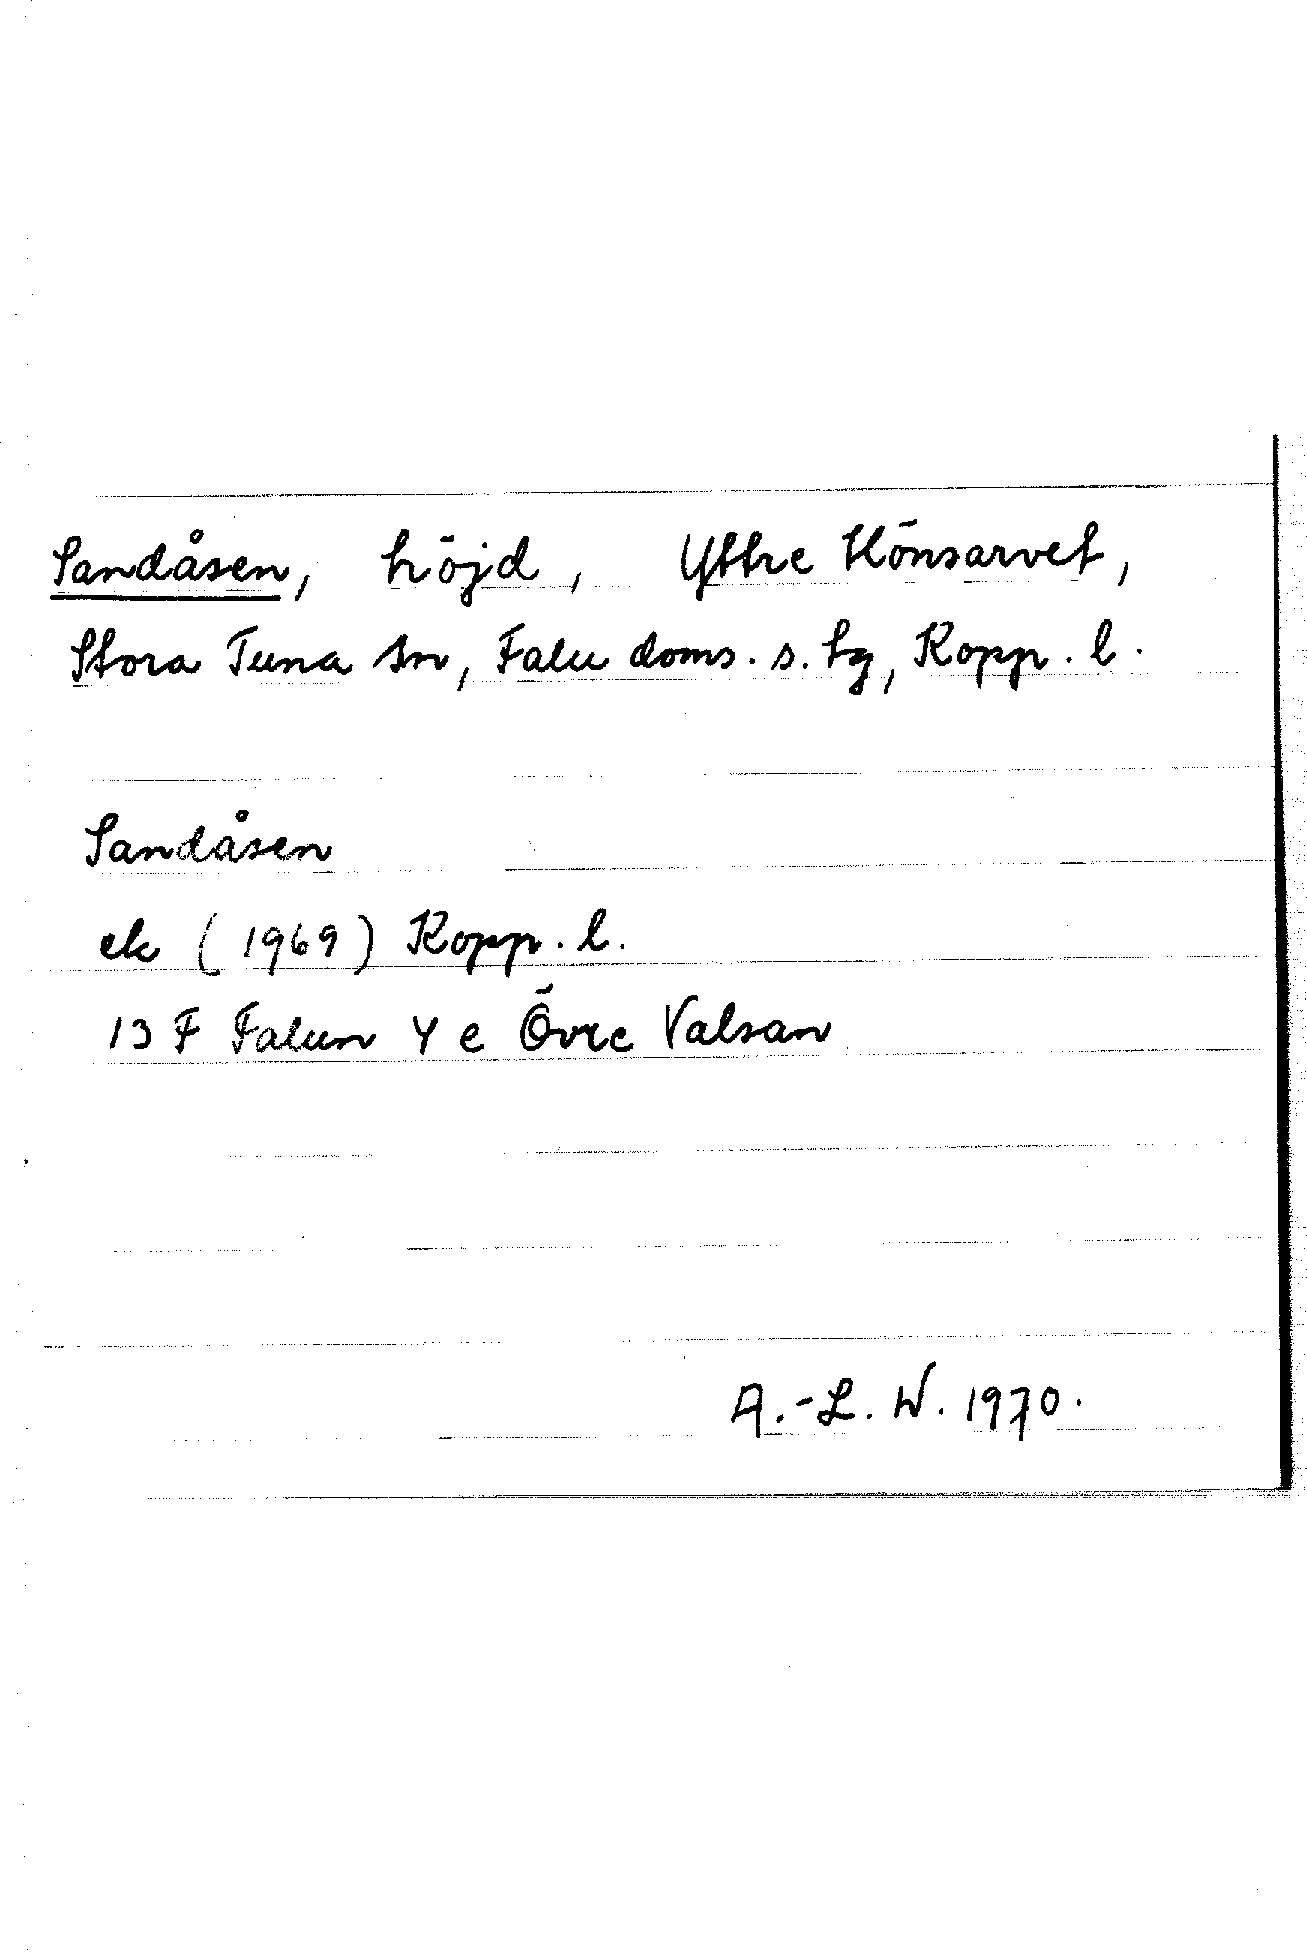 Sandåsen, höjd, Yttre Hönsarvet,
Stora Tuna sn, Falu doms. s. tg, Kopp. l.
Sandåsen
ek (1969) Kopp. l.
13 F Falun 4 e Övre Valsan
A.-L. W. 1970.